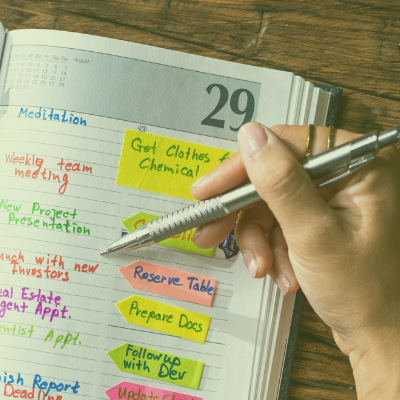 August
29
Meditation
Get Clothes f
Chemical
Weekly team
meeting
New Project
Presentation
unch with new
Investors
Reserve Table
eal Estate
gent Appt.
Prepare Docs
entist Appt.
Follow up
with Dev
nish Report
Deadline
Update